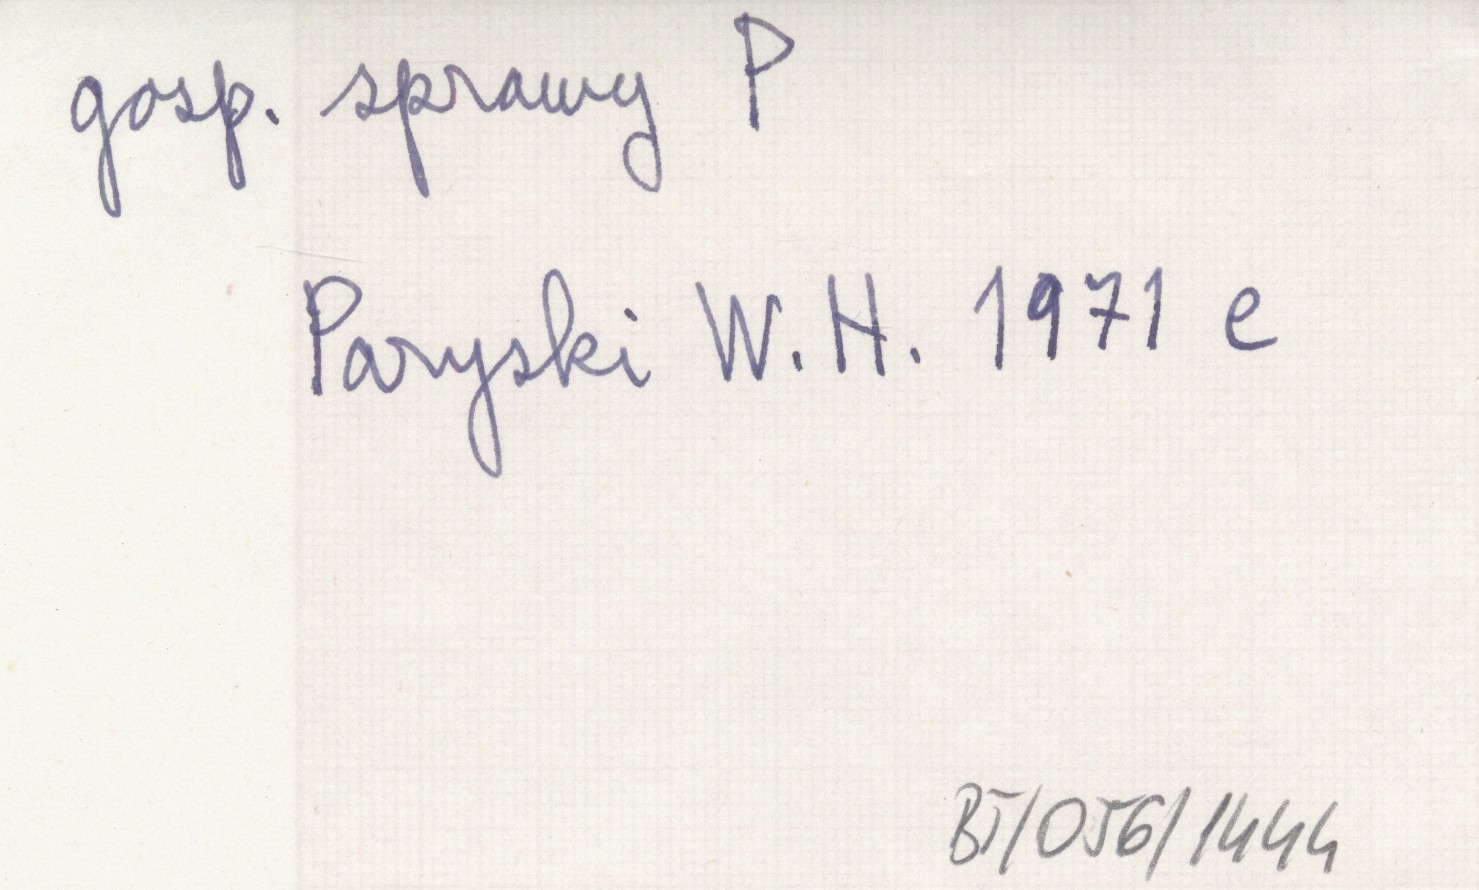 gosp. sprawy P
Paryski W.H. 1971 e
BT/056/1444